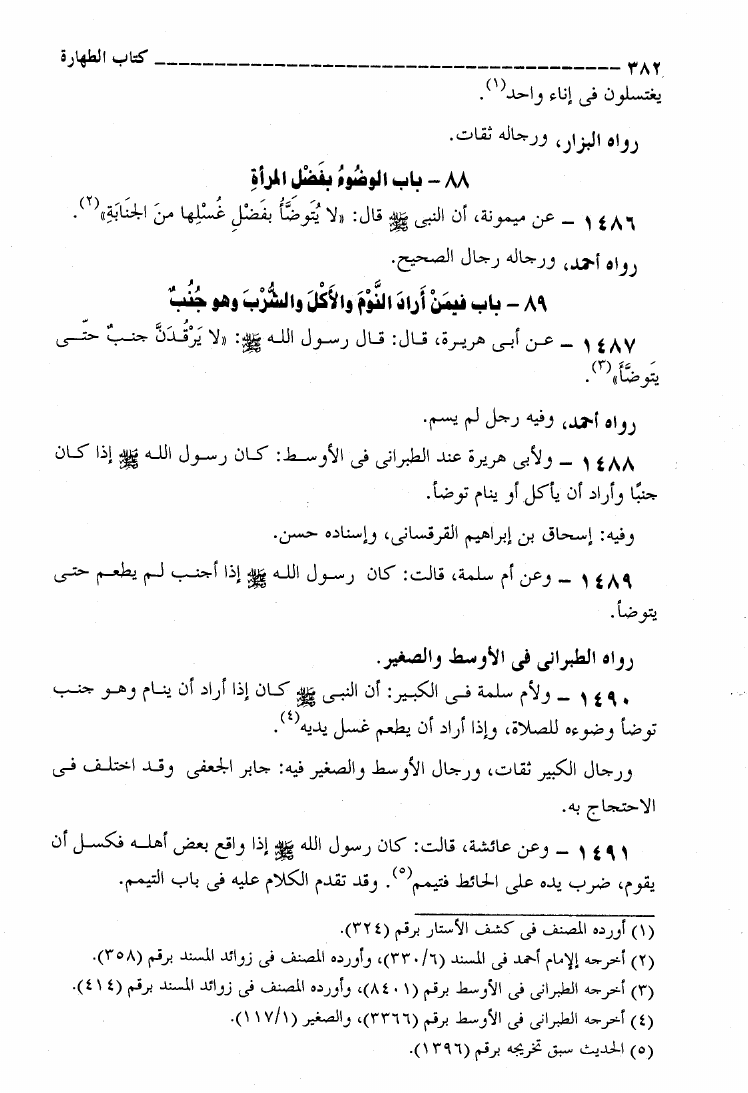 ٣٨٢ ـــــــــــــــــــــــــــــــــــــــــــــ كتاب الطهارة
يغتسلون فى إناء واحد(١).
رواه البزار، ورجاله ثقات.
٨٨ – باب الوضُوءُ بفَضْلِ المرأةِ
١٤٨٦ – عن ميمونة، أن النبى ﷺ قال: «لا يُتَوضَّأُ بفَضْلِ غُسْلِها منَ الجَنَابَةِ»(٢).
رواه أحمد، ورجاله رجال الصحيح.
٨٩ – باب فيمَنْ أرادَ النَّوْمَ والأكْلَ والشُّرْبَ وهو جُنُبٌ
١٤٨٧ – عن أبى هريرة، قال: قال رسول الله ﷺ: «لا يَرْقُدَنَّ جنبٌ حتَّى
يَتَوضَّأَ»(٣).
رواه أحمد، وفيه رجل لم يسم.
١٤٨٨ – ولأبى هريرة عند الطبرانى فى الأوسط: كان رسول الله ﷺ إذا كان
جنبًا وأراد أن يأكل أو ينام توضأ.
وفيه: إسحاق بن إبراهيم القرقسانى، وإسناده حسن.
١٤٨٩ – وعن أم سلمة، قالت: كان رسول الله ﷺ إذا أجنب لم يطعم حتى
يتوضأ.
رواه الطبرانى فى الأوسط والصغير.
١٤٩٠ – ولأم سلمة فى الكبير: أن النبى ﷺ كان إذا أراد أن ينام وهو جنب
توضأ وضوءه للصلاة، وإذا أراد أن يطعم غسل يديه(٤).
ورجال الكبير ثقات، ورجال الأوسط والصغير فيه: جابر الجعفى وقد اختلف فى
الاحتجاج به.
١٤٩١ – وعن عائشة، قالت: كان رسول الله ﷺ إذا واقع بعض أهله فكسل أن
يقوم، ضرب يده على الحائط فتيمم(٥). وقد تقدم الكلام عليه فى باب التيمم.
(١) أورده المصنف فى كشف الأستار برقم (٣٢٤).
(٢) أخرجه الإمام أحمد فى المسند (٣٣٠/٦)، وأورده المصنف فى زوائد المسند برقم (٣٥٨).
(٣) أخرجه الطبرانى فى الأوسط برقم (٨٤٠١)، وأورده المصنف فى زوائد المسند برقم (٤١٤).
(٤) أخرجه الطبرانى فى الأوسط برقم (٣٣٦٦)، والصغير (١١٧/١).
(٥) الحديث سبق تخريجه برقم (١٣٩٦).